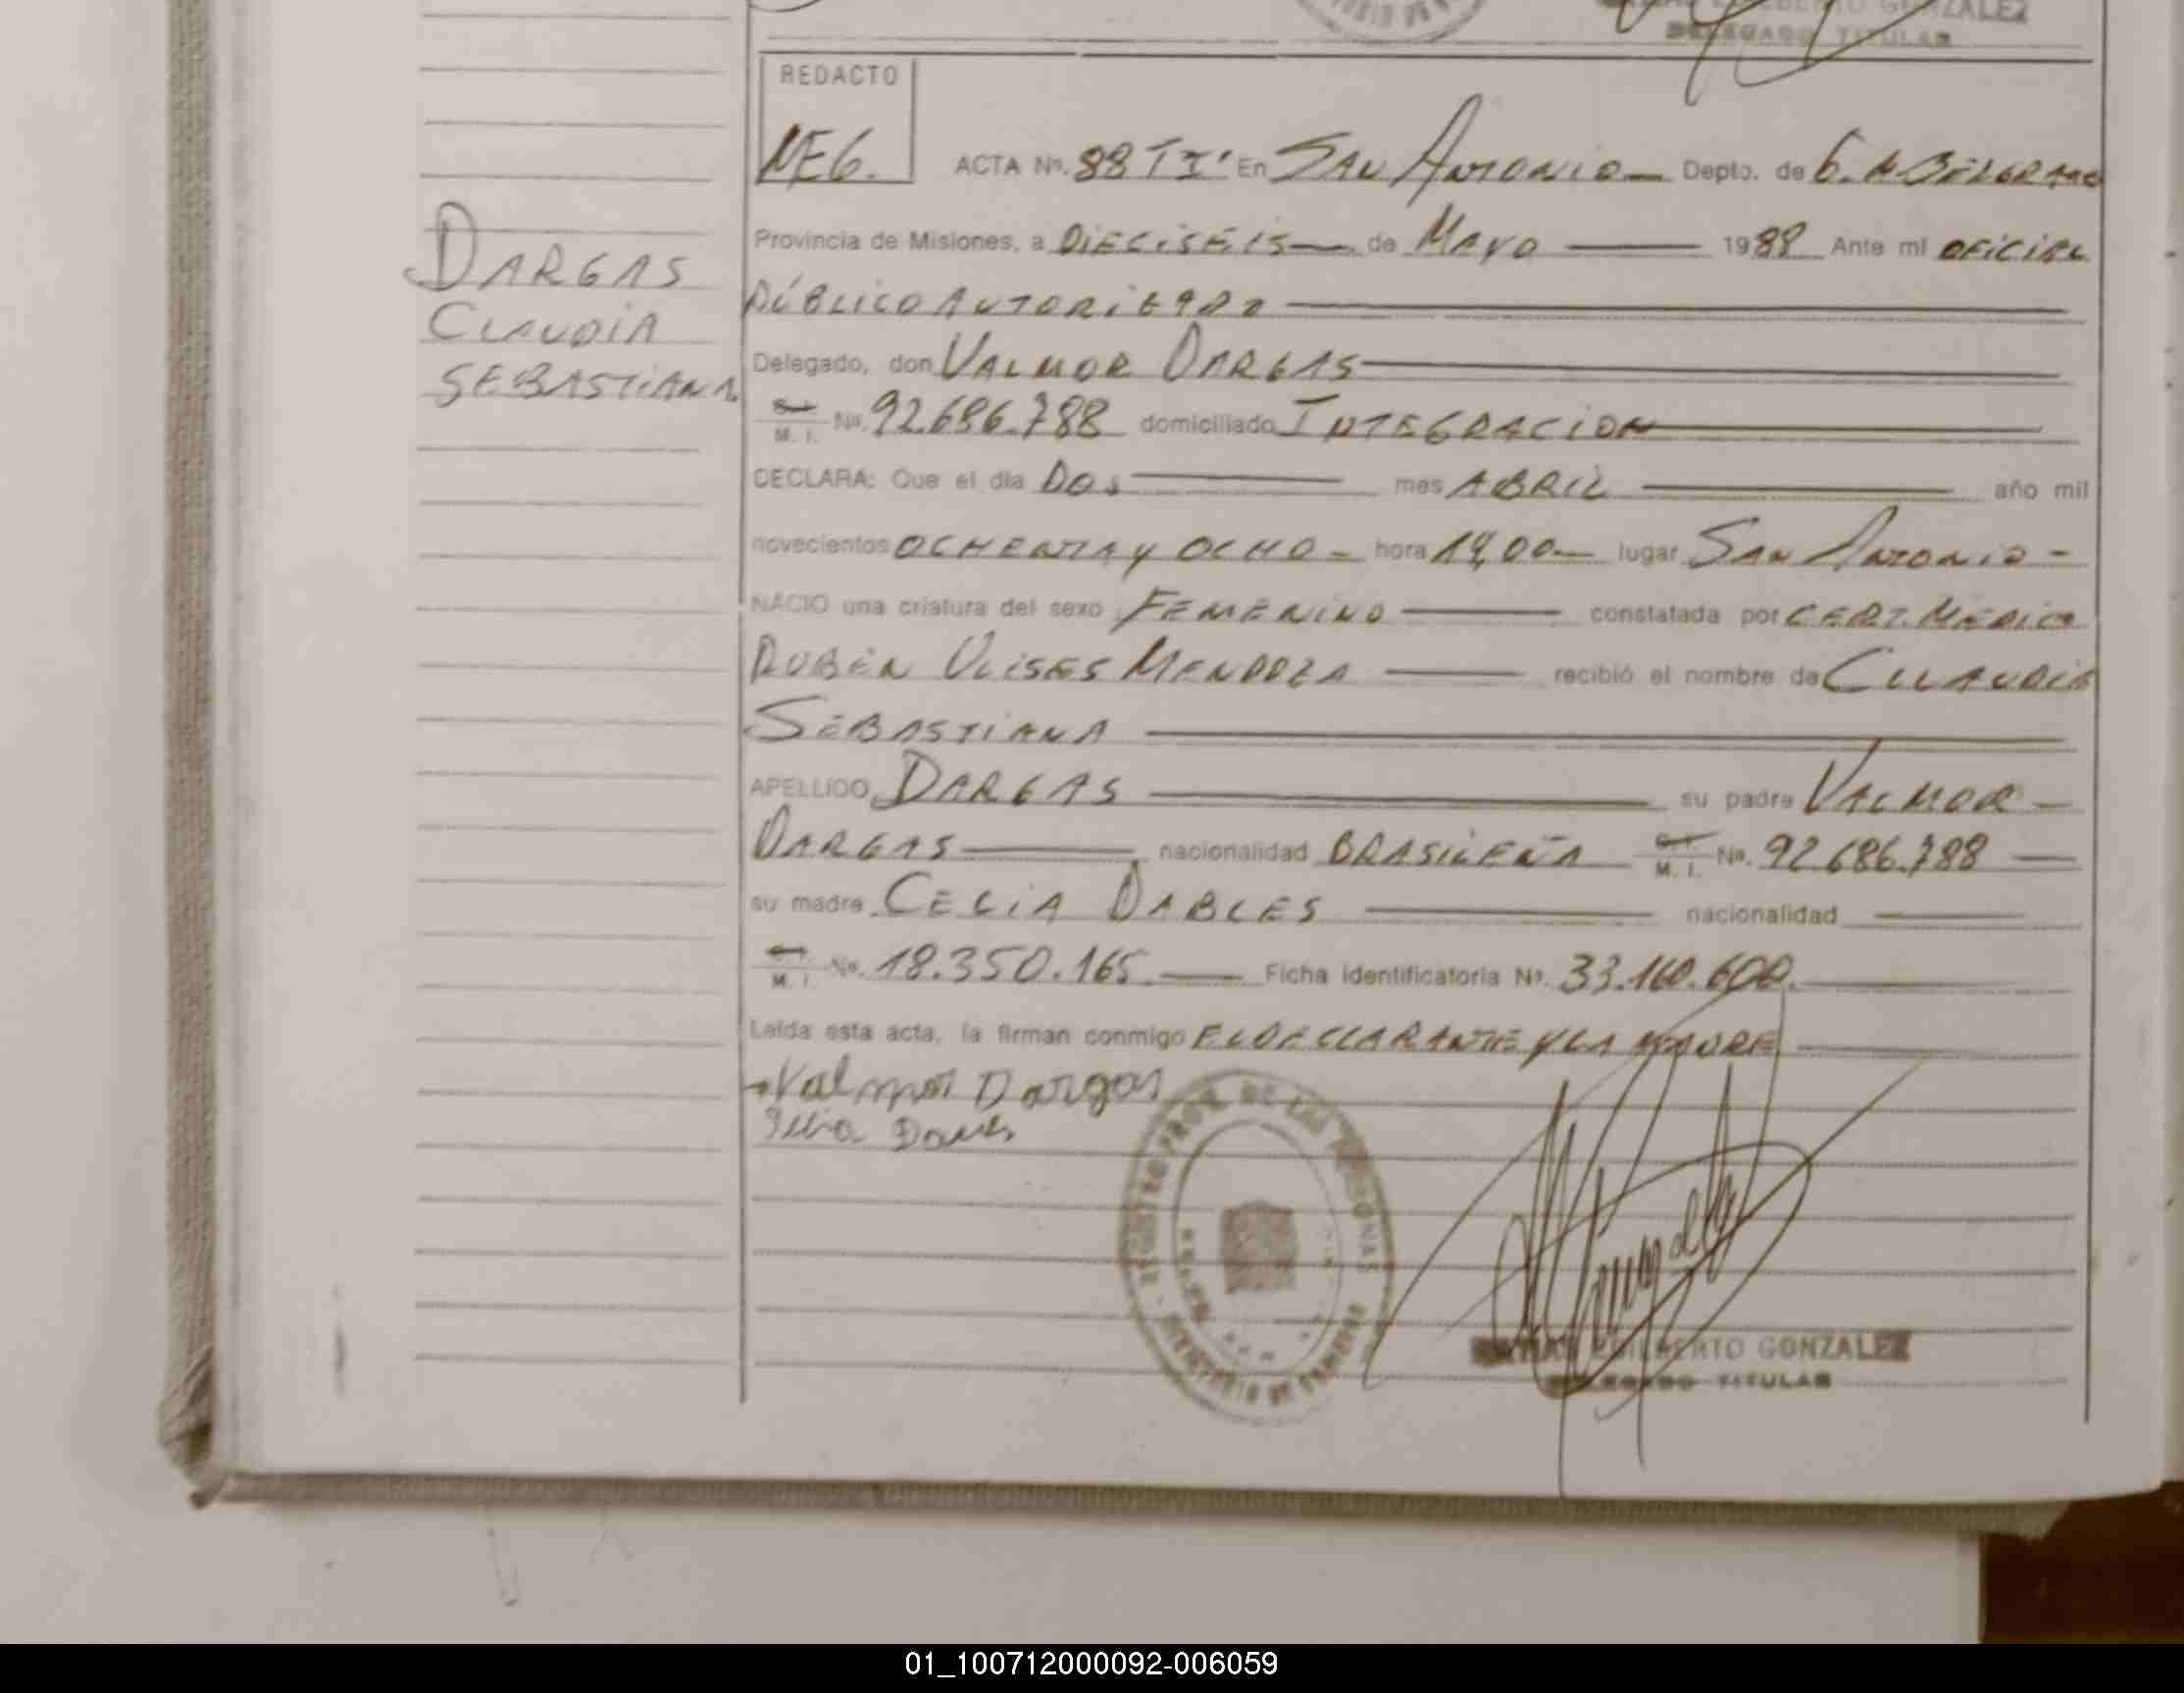 GONZALEZ
DELEGADO TITULAR
REDACTO
NEG.
ACTA Nº. 88 TI' En SAN ANTONIO Depto. de G. M BELGRANO
DARGAS
CLAUDIA
SEBASTIANA
Provincia de Misiones, a DIECISEIS de MAYO 1988 Ante mí OFICIAL
PÚBLICO AUTORIZADO
Delegado, don VALMOR DARGAS
M. I. Nº. 92.686.788 domiciliado INTEGRACION
DECLARA: Que el día DOS mes ABRIL año mil
novecientos OCHENTA Y OCHO - hora 19,00 lugar SAN ANTONIO -
NACIO una criatura del sexo FEMENINO constatada por CERT. MEDICO
RUBEN ULISES MENDOZA recibió el nombre de CLLAUDIA
SEBASTIANA
APELLIDO DARGAS su padre VALMOR
DARGAS nacionalidad BRASILEÑA M. I. Nº. 92.686.788
su madre CELIA DABLES nacionalidad
M. I. Nº. 18.350.165 Ficha identificatoria Nº. 33.160.600.
Leída esta acta, la firman conmigo EL DECLARANTE Y LA MADRE
Valmor Dargas
DE LAS PERSONAS
GILBERTO GONZALEZ
DELEGADO TITULAR
01_100712000092-006059